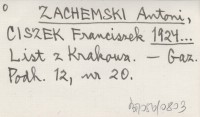 ZACHEMSKI Antoni,
CISZEK Franciszek 1924...
List z Krakowa. — Gaz.
Podh. 12, nr 20.